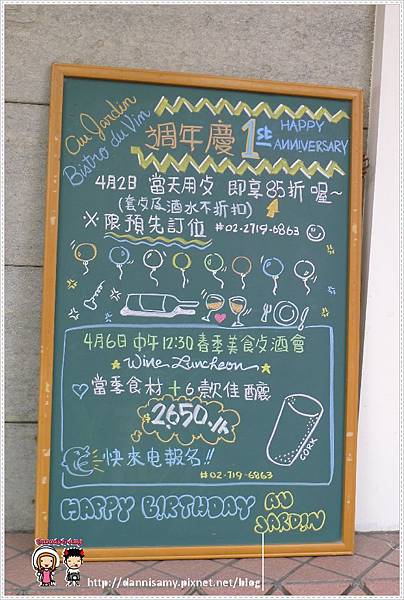 Au Jardin
Bistro du Vin
週年慶 1st
HAPPY
ANNIVERSARY
4月2日 當天用攴 即享85折 喔~
(套攴及酒水不折扣)
※限預先訂位 #02-2719-6863
4月6日 中午12:30 春季美食攴酒會
Wine Luncheon
當季食材＋6款佳釀
2,650./人
CORK
快來电報名!!
#02-719-6863
HAPPY BIRTHDAY AU
JARDIN
http://dannisamy.pixnet.net/blog